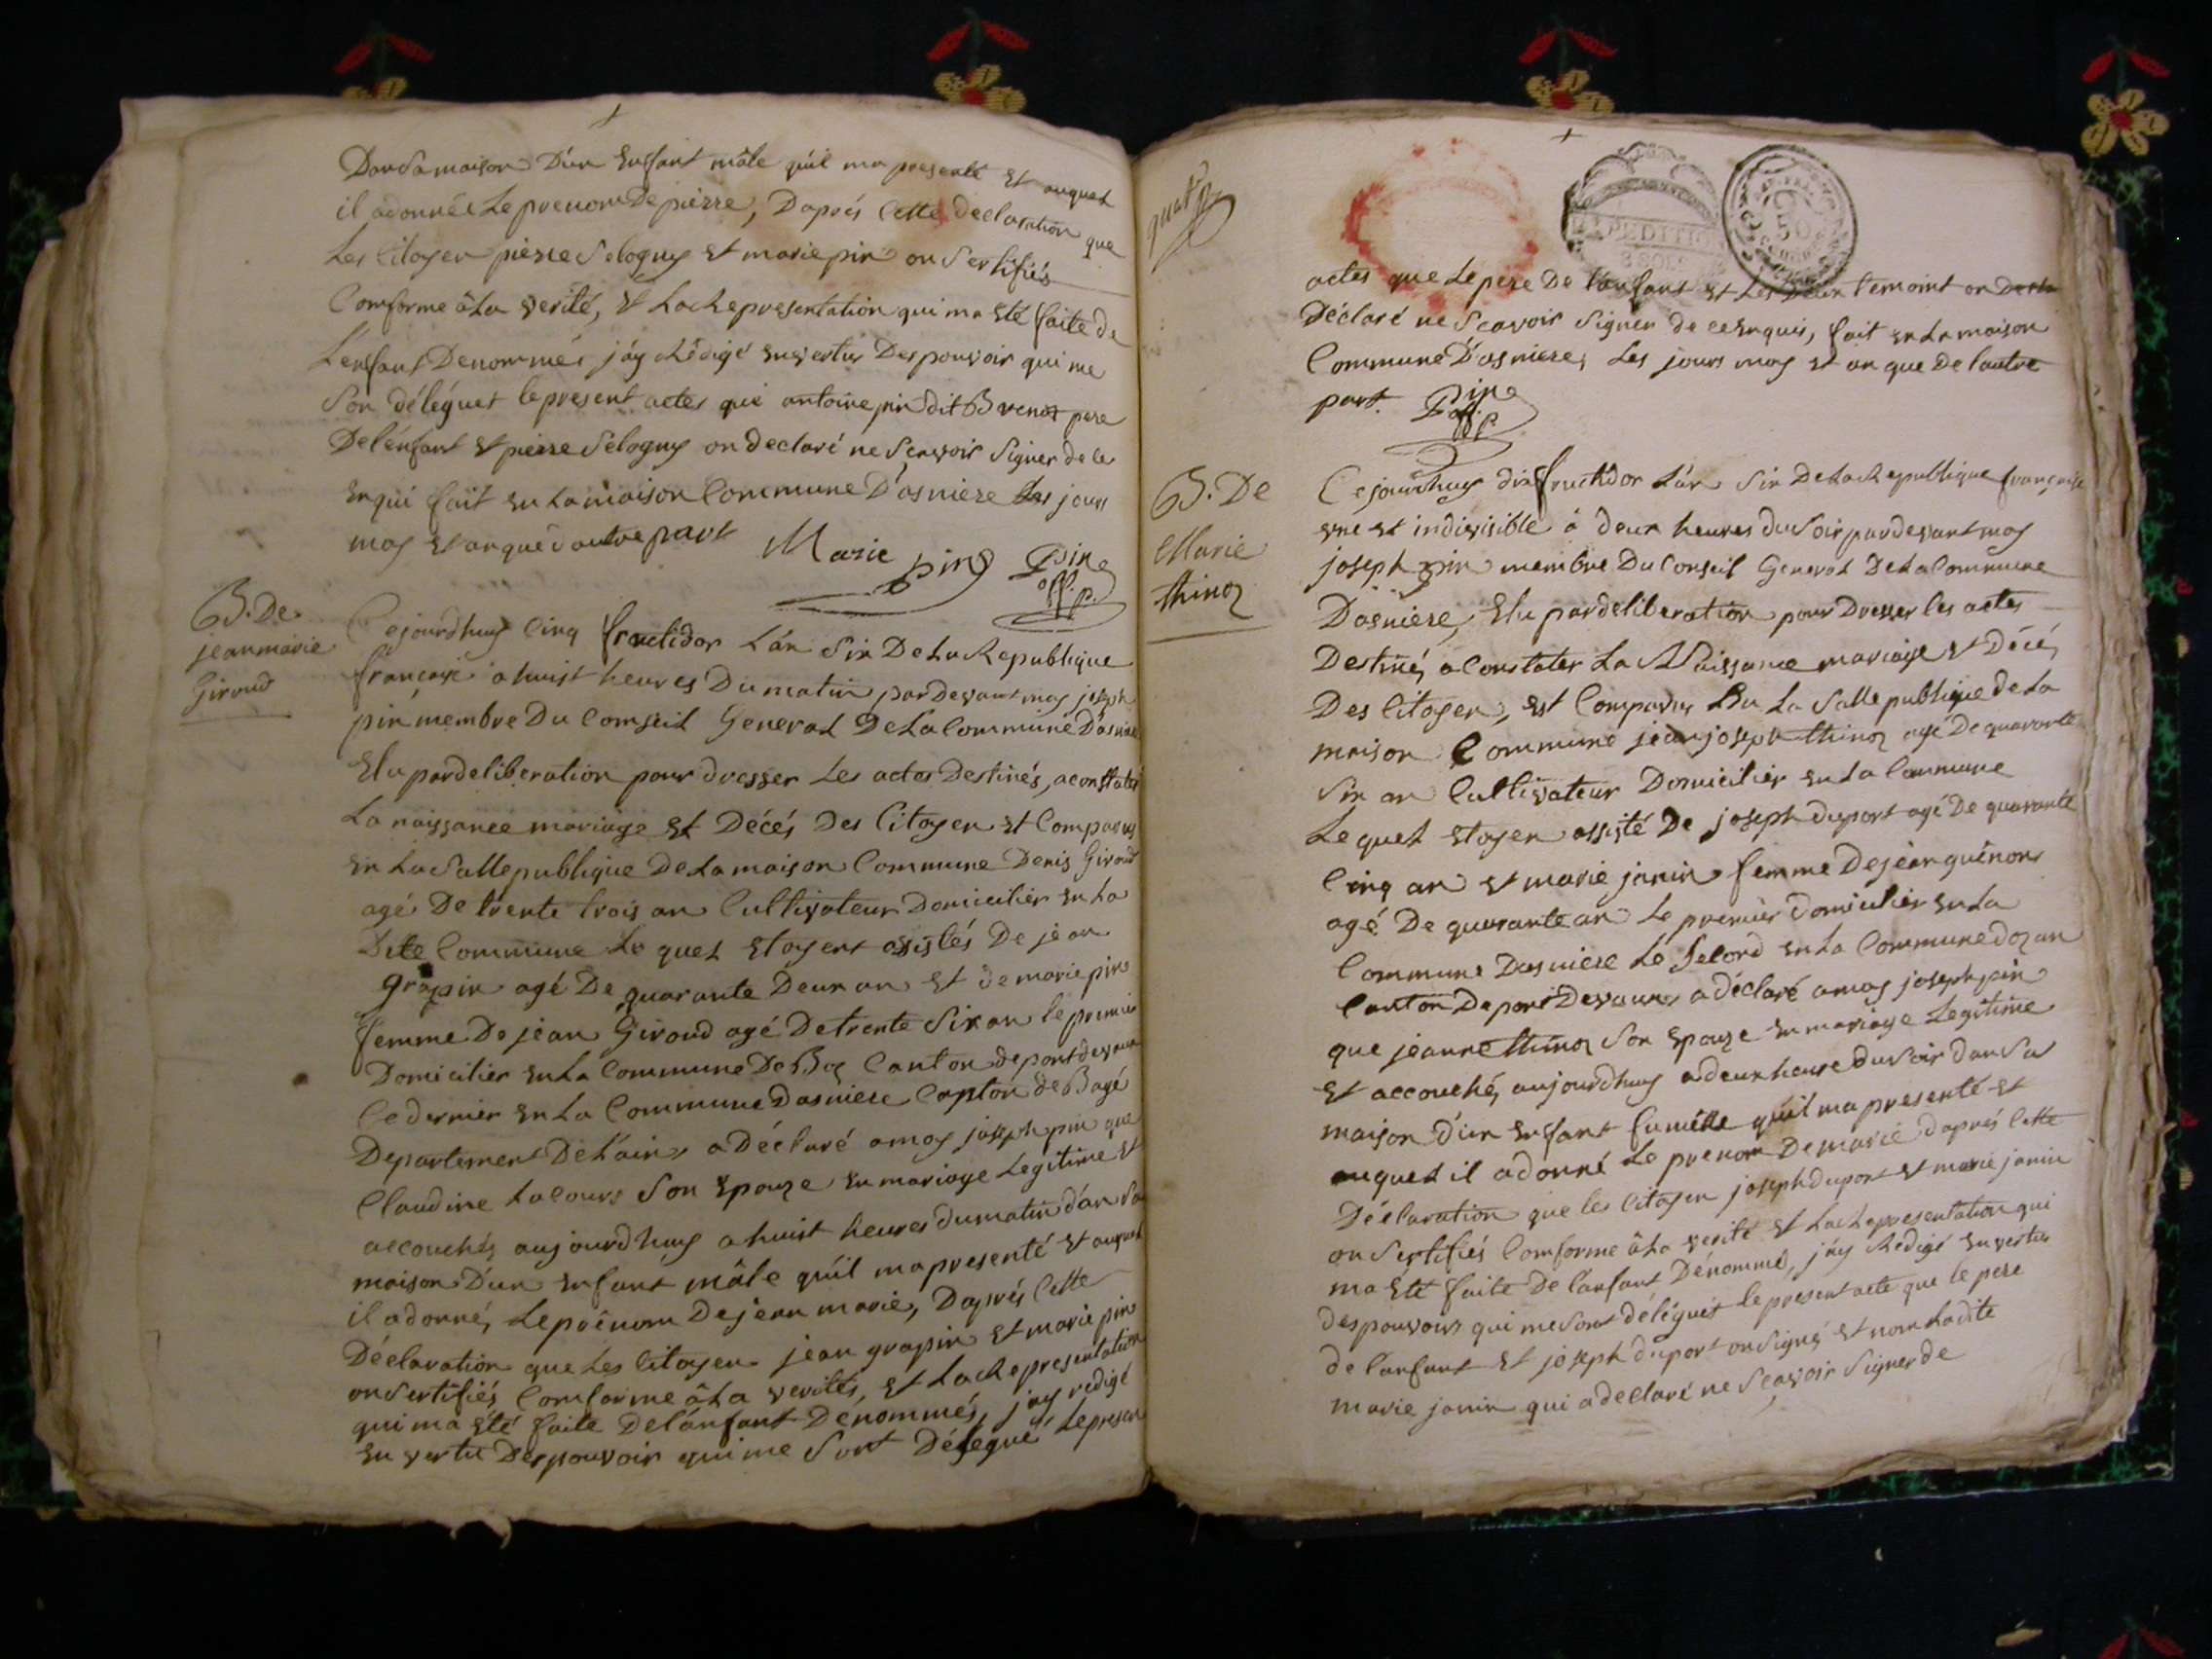 Dansamaison D'un Enfant mâle quil ma presenté Et auquel
il adonnée Le prenom De pierre, Daprés Cette declaration que
Les Citoyen pierre Selogny Et marie pin on Sertifiés
Comforme âLa verité, Et LaRepresentation qui ma Eté faite de
L'enfant Denommés j'ay Rédigé Envertus Des pouvoir qui me
Son déléguet le present actes que antoine pin dit Brenot pere
De l'enfant Et pierre Selogny on declaré ne Scavoir Signer de ce
Enqui fait En La maison Commune D'asniere Les jours
moy Et an que d'autre part
Marie pin Pin
off. p.
B. De
jean marie
Giroud
Cejourdhuy Cinq fructidor L'an Six De La Republique
françoise a huist heures Du matin par Devant moy joseph
pin membre Du Comseil General De La Commune D'asniere
Elu par deliberation pour dresser Les actes Destinés, a constater
La naissance mariage Et Décés Des Citoyen Et Comparus
En La Salle publique De La maison Commune Denis Giroud
agé De trente trois an Cultivateur Domicilier En La
Dite Commune Le quel Etoyent assistés De jean
grapin agé De quarante Deux an Et de marie pin
femme De jean Giroud agé De trente Six an le premier
Domicilier En La Commune De Boz Canton de pont devaux
Ce dernier En La Commune Dasniere Canton de Bagé
Departement De L'ain a Déclaré amoy joseph pin que
Claudine Lacour Son Epouze En mariage Legitime Et
accouchés aujourdhuy a huist heures du matin d'an Sa
maison D'un Enfant mâle quil ma presenté Et auquel
il adonné, Le prênom De jean marie, Daprés Cette
Déclaration que Les Citoyen jean grapin Et marie pin
on Sertifiés Comforme âLa verités, Et La Representation
qui ma Eté faite De L'anfant Dénommés, jay redigé
En vertu Des pouvoir qui me Sont Délegué Le present
actes que Le pere De L'anfant Et Les Deux temoint on
Déclaré ne Scavoir Signer de ce Enquis, fait En La maison
Commune D'asniere, Les jours moy Et an que De l'autre
part. Pin
off. p.
B. De
Marie
thinoz
Cejourdhuy dix fructidor L'an Six De La Republique françoise
une Et indivisible à deux heures du Soir par devant moy
joseph pin membre Du Conseil General De La Commune
Dasniere, Elu par deliberation pour Dresser les actes
Destiné, a Constater La Naissance mariage Et Décé,
Des Citoyen, Est Comparus En La Salle publique de La
maison Commune jean joseph thinoz agé De quarante
Six an Cultivateur Domicilier En La Commune
Le quel Etoyen assisté De joseph duport agé De quarante
Cinq an Et marie janin femme De jean guénon
agé De quarante an Le premier Domicilier En La
Commune Dasniere Le Second En La Commune dozan
Canton De pont Devaux a déclaré amoy joseph pin
que jeanne thinoz Son Epouze En mariage Legitime
Et accouché, aujourdhuy a deux heure du Soir dan Sa
maison d'un Enfant fumelle quil ma presenté Et
auquel il adonné Le prenom De marie daprés Cette
Déclaration que les Citoyen joseph duport Et marie janin
on Sertifiés Comforme âLa verité Et La Representation qui
ma Eté faite De L'anfant Dénommé, j'ay Redigé En vertus
des pouvoirs qui me Sont délégués le present acte que le pere
de L'anfant Et joseph duport on Signés Et nom Ladite
marie janin qui a declaré ne Sçavoir Signer de